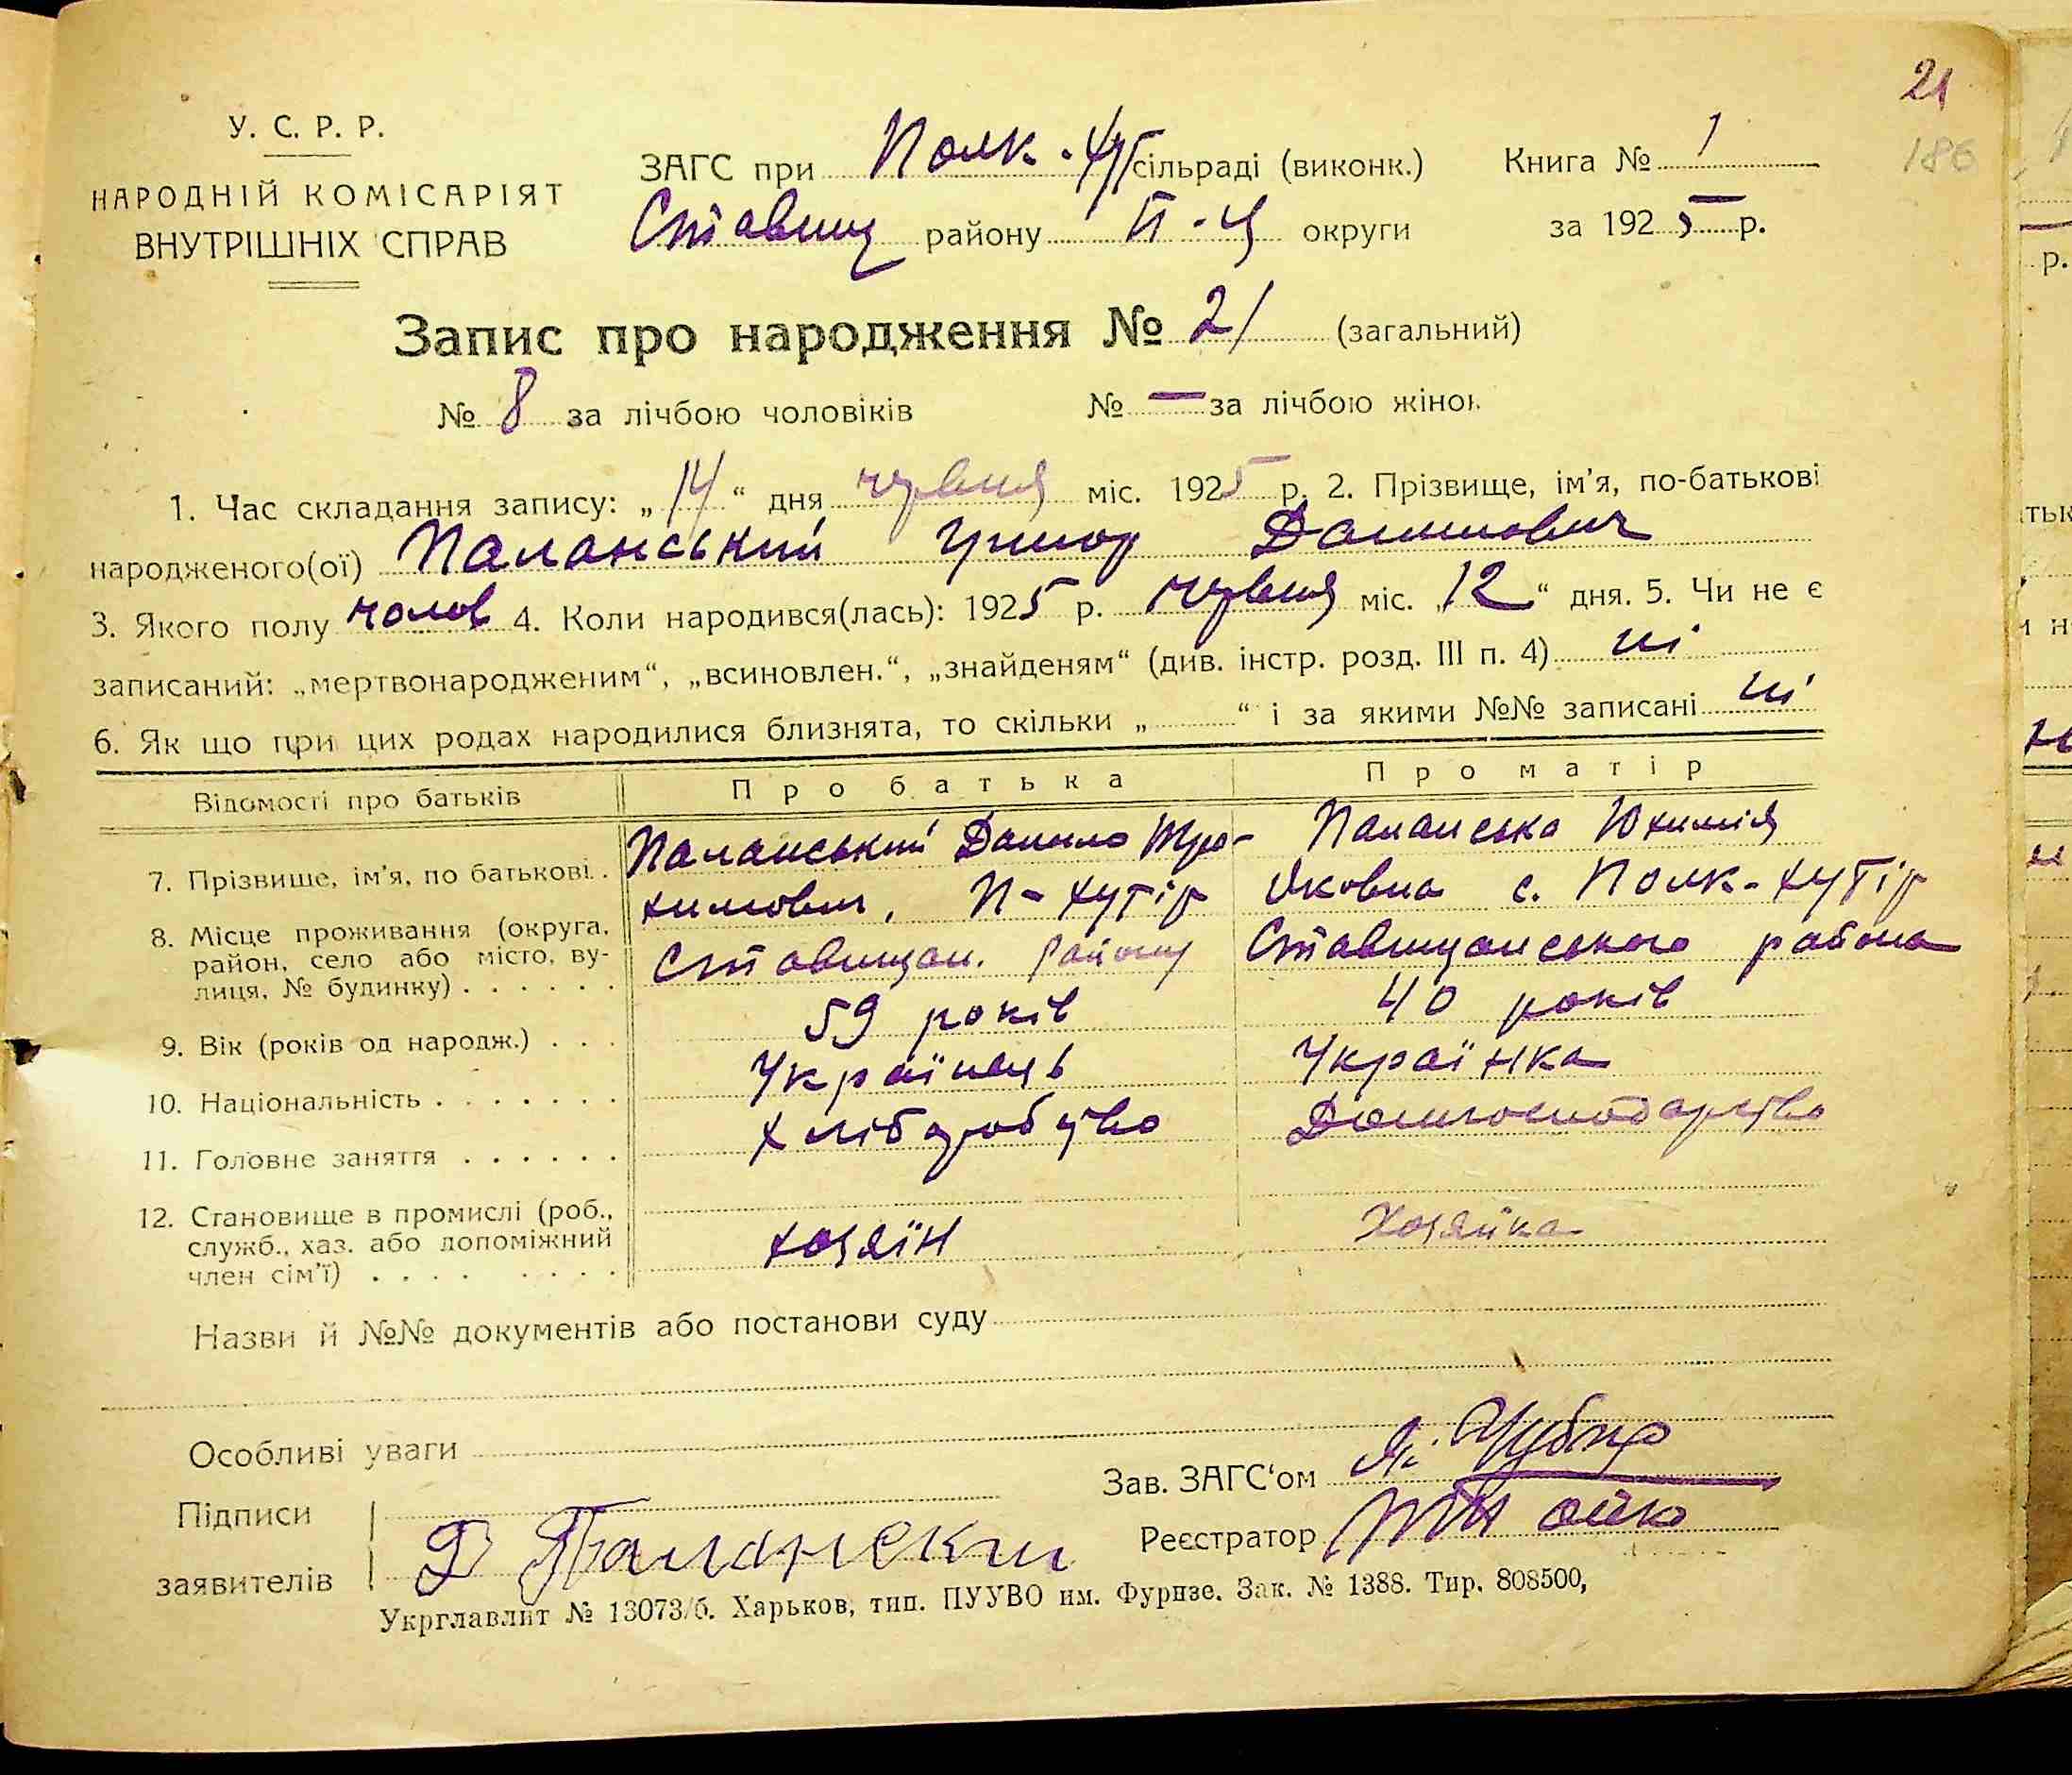 21
186
У. С. Р. Р.
НАРОДНІЙ КОМІСАРІЯТ
ВНУТРІШНІХ СПРАВ
ЗАГС при Полк.-Хут сільраді (виконк.) Книга № 1
Ставищ району Б.-Ц округи за 1925 р.
Запис про народження № 21 (загальний)
№ 8 за лічбою чоловіків № — за лічбою жінок
1. Час складання запису: „14“ дня червня міс. 1925 р. 2. Прізвище, ім’я, по-батькові
народженого(ої) Паланський Данилович
3. Якого полу чолов 4. Коли народився(лась): 1925 р. червня міс. „12“ дня. 5. Чи не є
записаний: „мертвонародженим“, „всиновлен.“, „знайденям“ (див. інстр. розд. III п. 4) ні
6. Як що при цих родах народилися близнята, то скільки „ “ і за якими №№ записані ні
Відомості про батьків Про батька Про матір
7. Прізвище, ім’я, по батькові. . Паланський Данило Тро- Паланська Юхимія
химович, П-хутір Яковна с. Полк-хутір
8. Місце проживання (округа, район, село або місто, вулиця, № будинку) . . . . . . Ставищан. району Ставищанського района
9. Вік (років од народж.) . . . 59 років 40 років
10. Національність . . . . . . . Українець Українка
11. Головне заняття . . . . . . Хліборобство Домгосподарство
12. Становище в промислі (роб., служб., хаз. або допоміжний член сім’ї) . . . . . . . . хозяїн Хозяйка
Назви й №№ документів або постанови суду
Особливі уваги
Зав. ЗАГС‘ом
Підписи
заявителів Д Палански
Реєстратор
Укрглавліт № 13073/б. Харьков, тип. ПУУВО им. Фурнзе. Зак. № 1388. Тир. 808500,